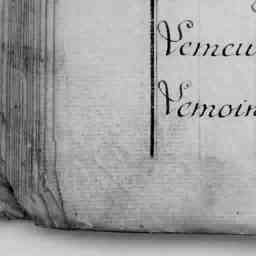 Vemeu
Vemoin